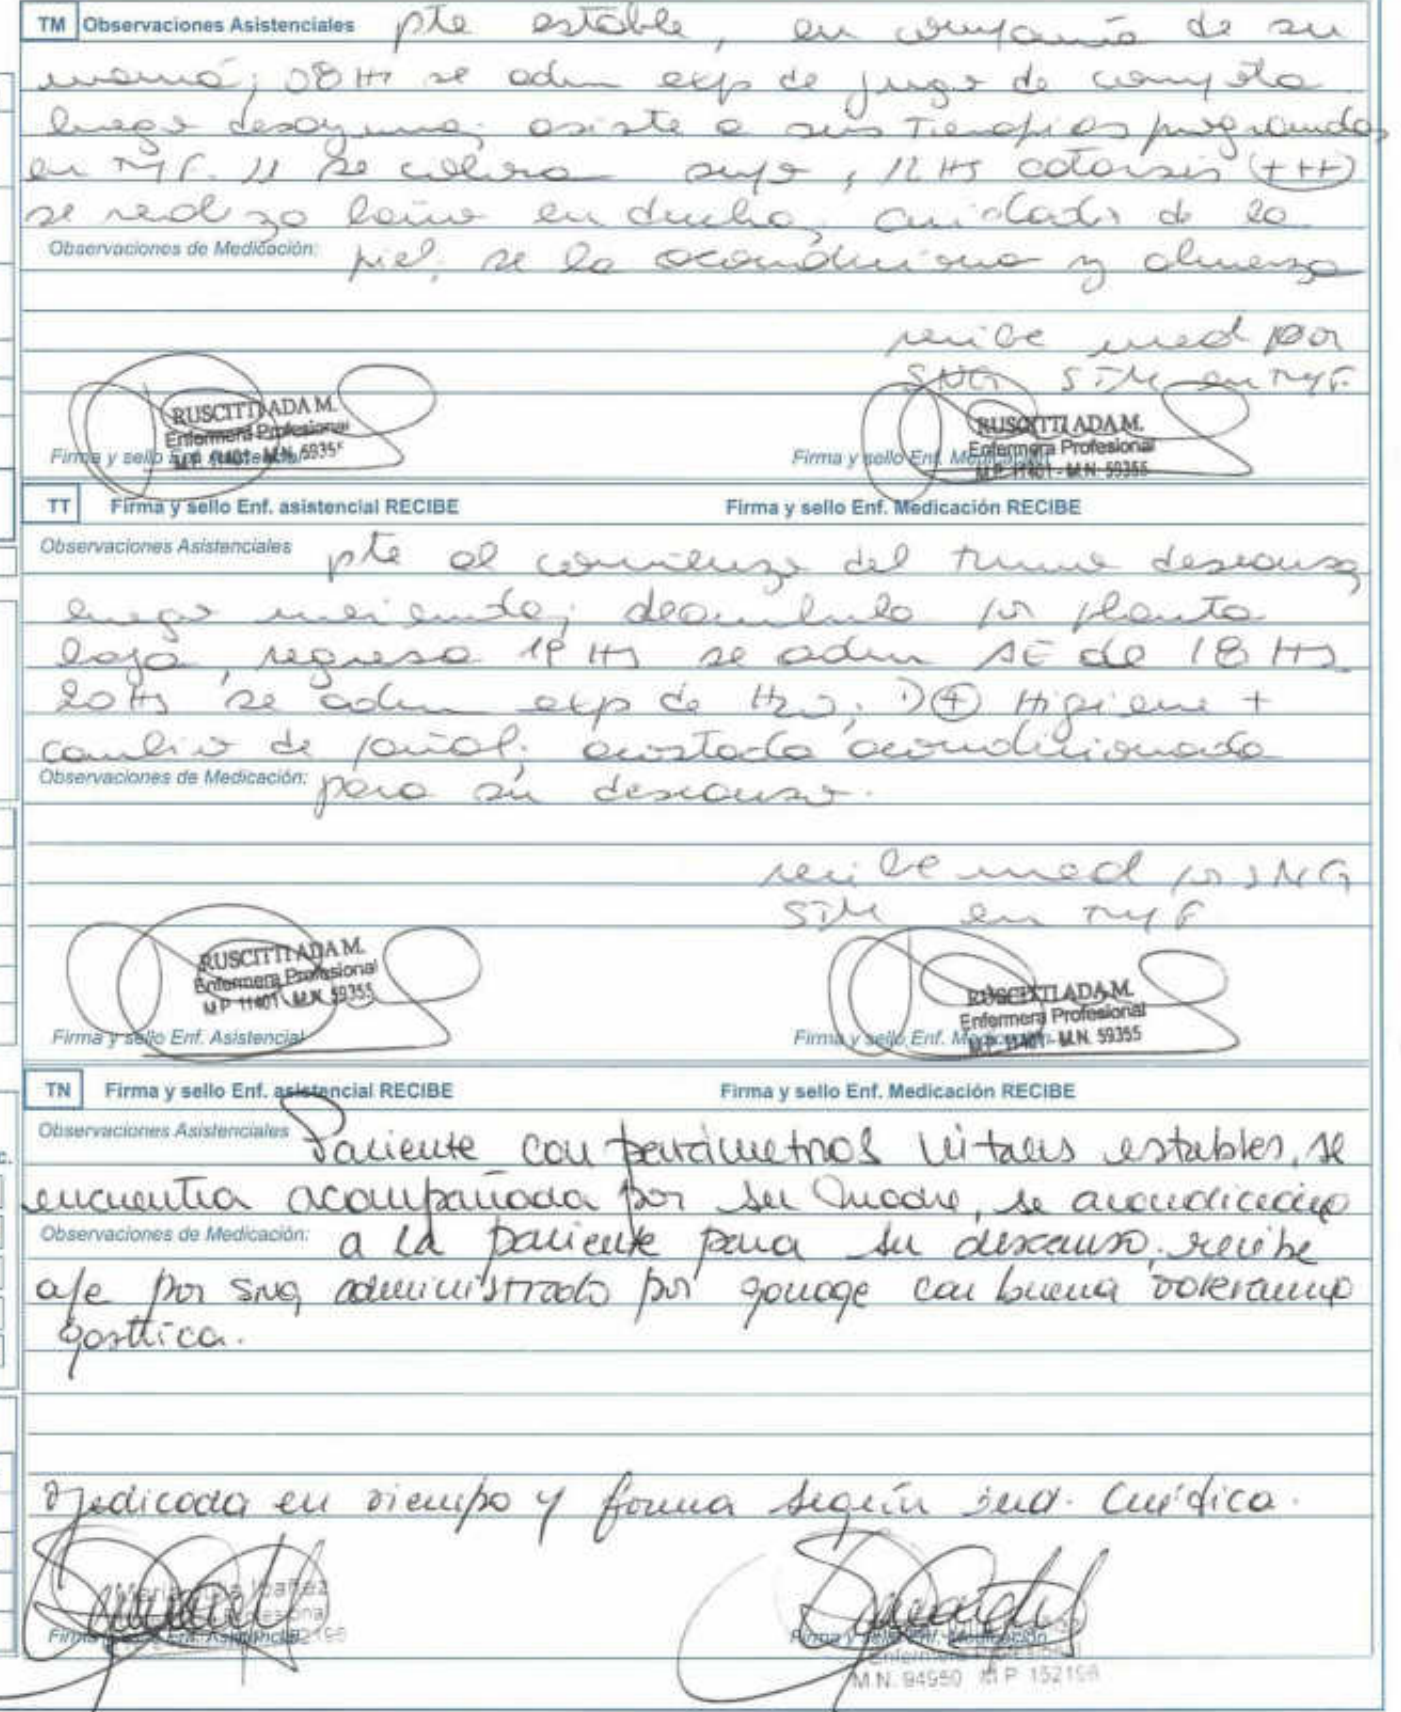 TM Observaciones Asistenciales pte estable, en compañia de su
mamá; 08 Hs se adm exp de jugo de compota
luego desayuna; asiste a sus Terapias programadas
en TyF. 11 se coloca supo, 12 Hs catarsis (+++)
se realizo baño en ducha, cuidados de la
Observaciones de Medicación: piel, se la acondiciona y almuerza
recibe med por
SNG STM en TyF.
RUSCITTI ADA M.
Enfermera Profesional
M.P. 11401 - M.N. 59355
Firma y sello Enf. Asistencial
RUSCITTI ADA M.
Enfermera Profesional
M.P. 11401 - M.N. 59355
Firma y sello Enf. Medicación
TT Firma y sello Enf. asistencial RECIBE Firma y sello Enf. Medicación RECIBE
Observaciones Asistenciales pte al comienzo del turno descansa,
luego merienda; deambula por planta
baja, regresa 19 Hs se adm AE de 18 Hs
20 Hs se adm exp de H2O; D(+) Higiene +
cambio de pañal; acostada acondicionada
Observaciones de Medicación: para su descanso.
recibe med por SNG
STM en TyF
RUSCITTI ADA M.
Enfermera Profesional
M.P. 11401 M.N. 59355
Firma y sello Enf. Asistencial
RUSCITTI ADA M.
Enfermera Profesional
M.P. 11401 - M.N. 59355
Firma y sello Enf. Medicación
TN Firma y sello Enf. asistencial RECIBE Firma y sello Enf. Medicación RECIBE
Observaciones Asistenciales Paciente con parámetros vitales estables, se
encuentra acompañada por su madre, se acondiciona
Observaciones de Medicación: a la paciente para su descanso. recibe
a/e por SNG administrado por gavage con buena tolerancia
gastrica.
Medicada en tiempo y forma según ind. médica.
Ibañez
Firma y sello Enf. Asistencial
Firma y sello Enf. Medicación
Enfermera Profesional
M.N. 94950 M.P. 152196